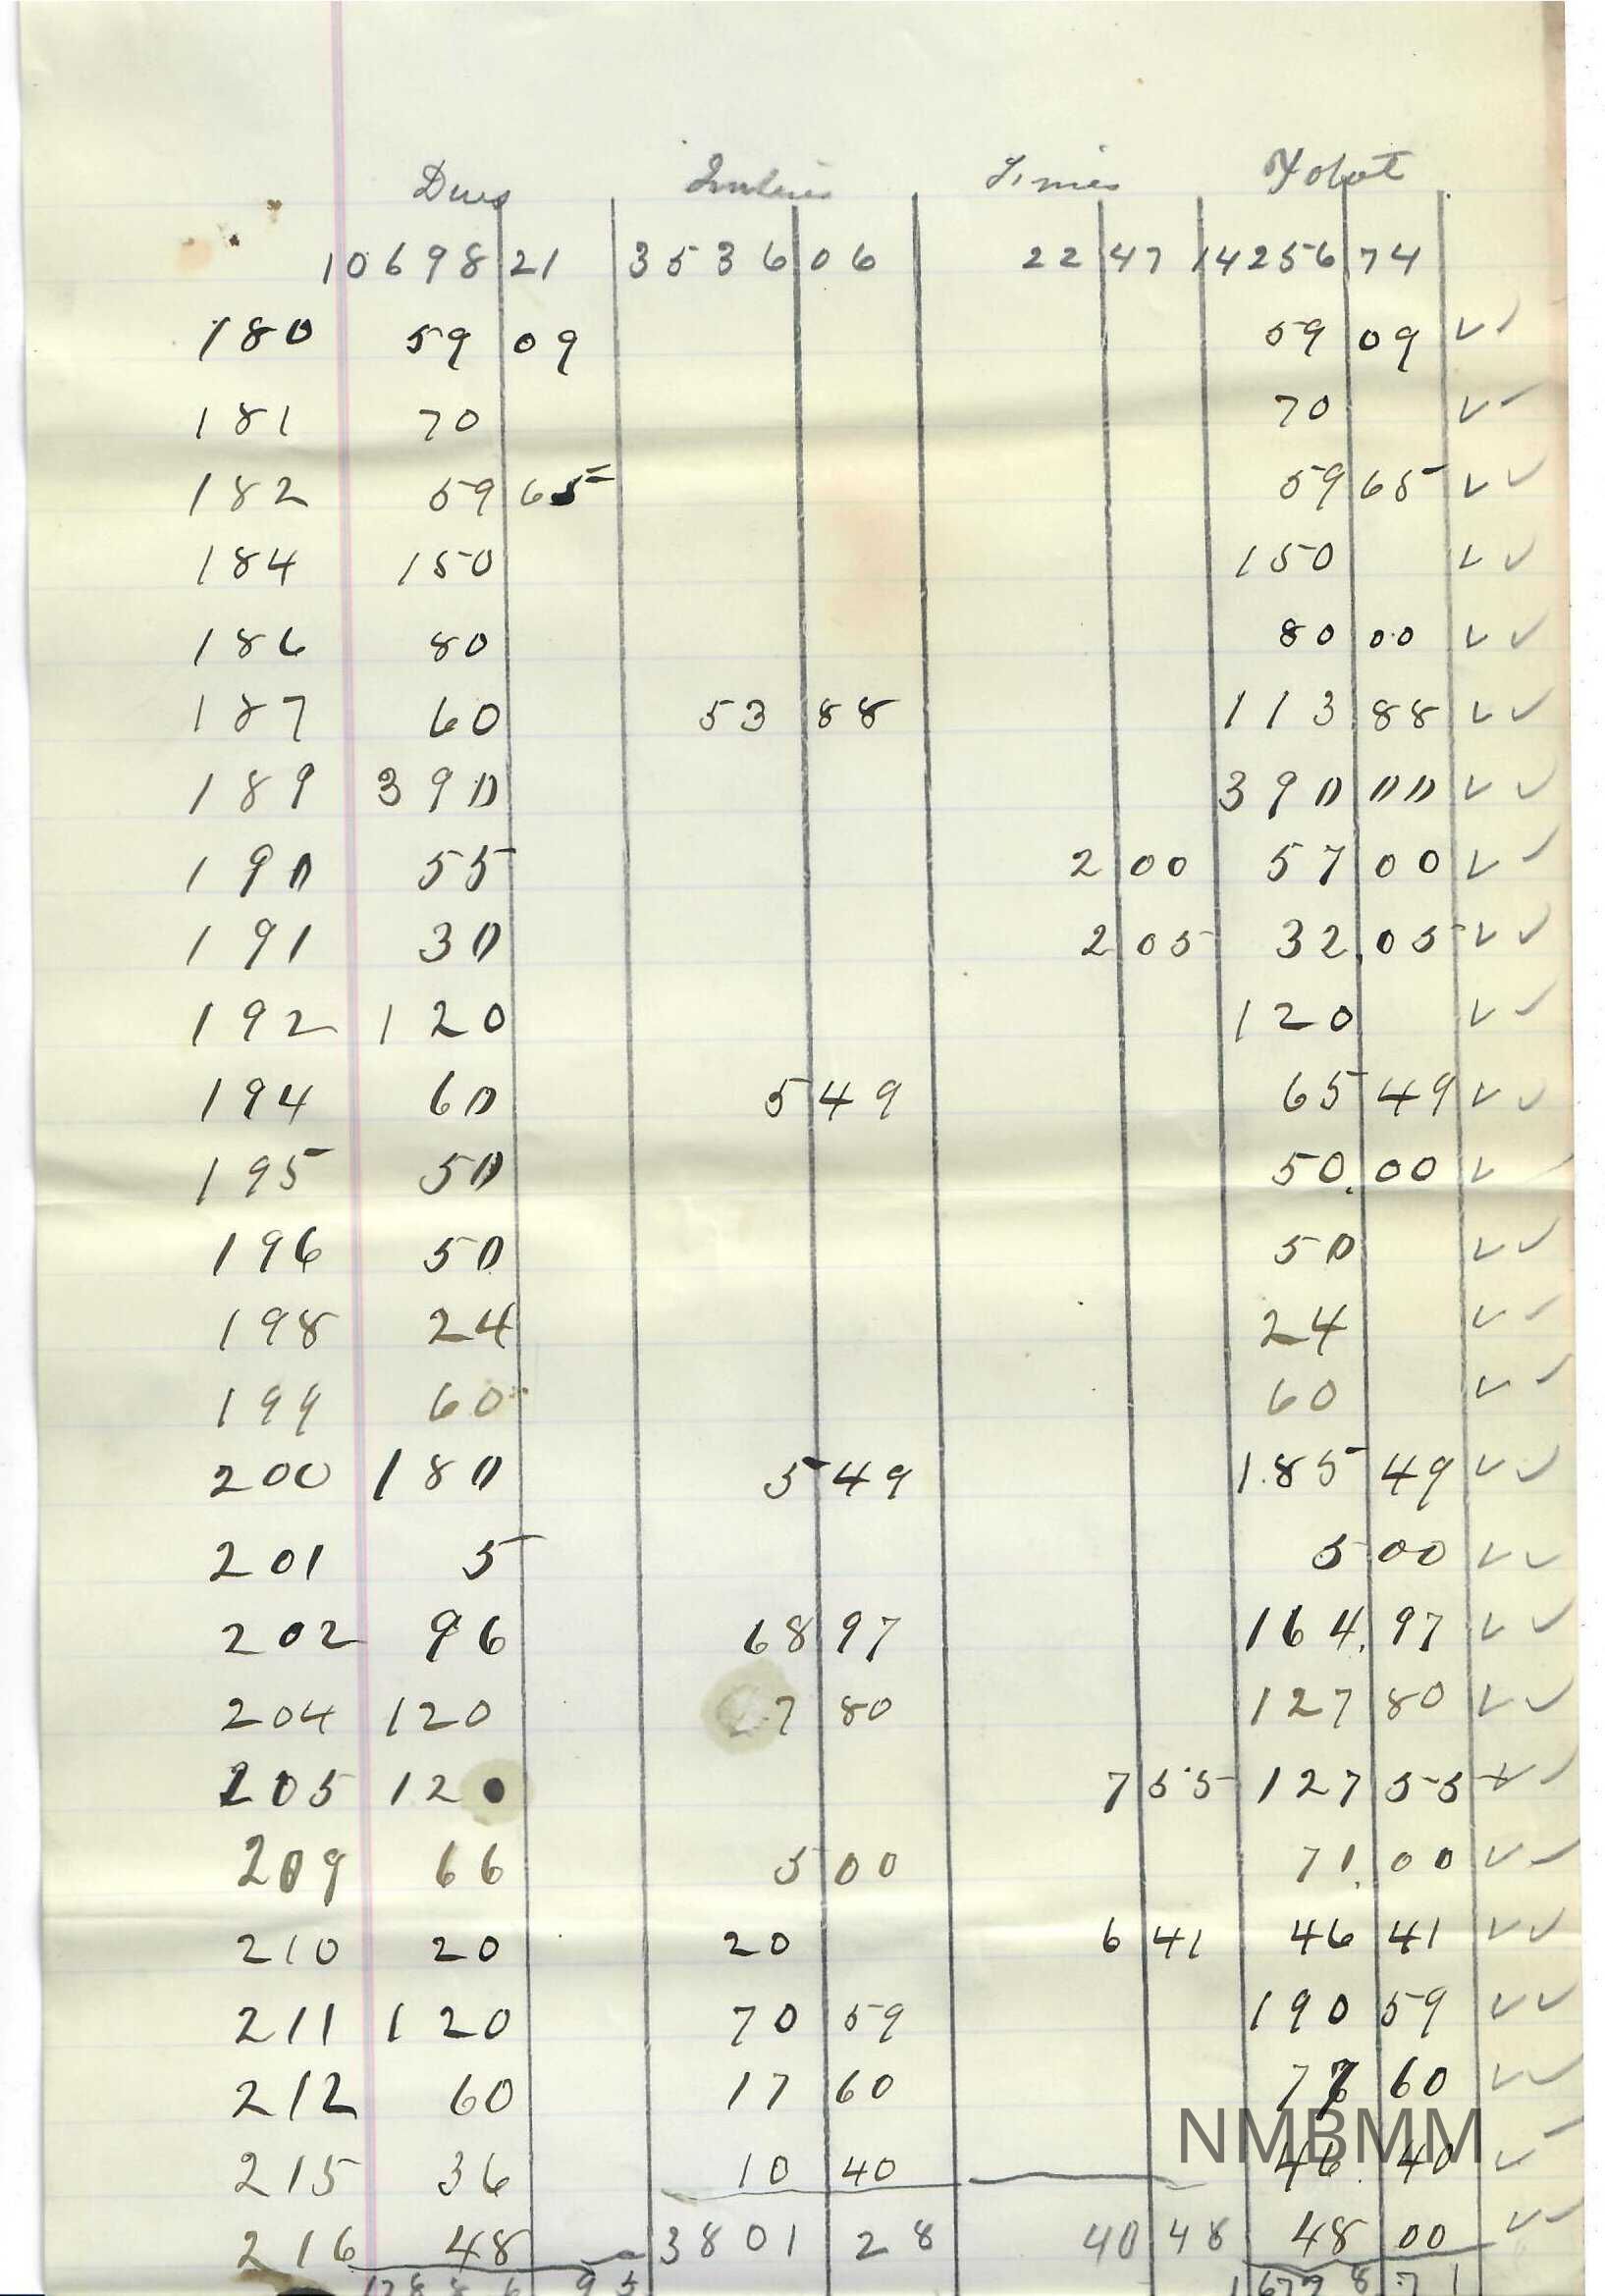 Dues Intries Fines Total
10698 21 3536 06 22 47 14256 74
180 59 09 59 09 ✓✓
181 70 70 ✓✓
182 59 65 59 65 ✓✓
184 150 150 ✓✓
186 80 80 00 ✓✓
187 60 53 88 113 88 ✓✓
189 390 390 00 ✓✓
190 55 2 00 57 00 ✓✓
191 30 2 05 32.05 ✓✓
192 120 120 ✓✓
194 60 5 49 65 49 ✓✓
195 50 50.00 ✓✓
196 50 50 ✓✓
198 24 24 ✓✓
199 60 60 ✓✓
200 180 5 49 185 49 ✓✓
201 5 5 00 ✓✓
202 96 68 97 164.97 ✓✓
204 120 7 80 127 80 ✓✓
205 120 7 55 127 55 ✓✓
209 66 5 00 71.00 ✓✓
210 20 20 6 41 46 41 ✓✓
211 120 70 59 190 59 ✓✓
212 60 17 60 77 60 ✓✓
215 36 10 40 46.40 ✓✓
216 48 3801 28 40 48 48 00 ✓✓
12886 95 16728 71
NMBMM